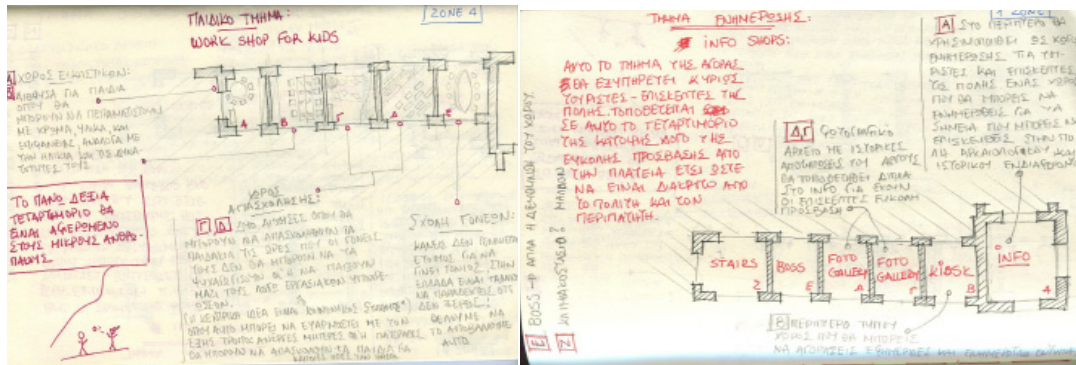 ΠΑΙΔΙΚΟ ΤΜΗΜΑ:
ZONE 4
WORK SHOP FOR KIDS
ΧΩΡΟΣ ΕΙΚΑΣΤΙΚΩΝ:
ΑΙΘΟΥΣΑ ΓΙΑ ΠΑΙΔΙΑ
ΟΠΟΥ ΘΑ
ΜΠΟΡΟΥΝ ΝΑ ΠΕΙΡΑΜΑΤΙΣΤΟΥΝ
ΜΕ ΧΡΩΜΑ, ΥΛΙΚΑ, ΚΑΙ
ΕΠΙΦΑΝΕΙΕΣ ΑΝΑΛΟΓΑ ΜΕ
ΤΗΝ ΗΛΙΚΙΑ ΚΑΙ ΤΙΣ ΔΥΝΑ-
ΤΟΤΗΤΕΣ ΤΟΥΣ
Α Β Γ Δ Ε
ΤΟ ΠΑΝΩ ΔΕΞΙΑ
ΤΕΤΑΡΤΗΜΟΡΙΟ ΘΑ
ΕΙΝΑΙ ΑΦΙΕΡΩΜΕΝΟ
ΣΤΟΥΣ ΜΙΚΡΟΥΣ ΑΝΘΡΩ-
ΠΟΥΣ
ΧΩΡΟΣ
ΑΠΑΣΧΟΛΗΣΗΣ:
Γ,Δ ΔΥΟ ΑΙΘΟΥΣΕΣ ΟΠΟΥ ΘΑ
ΜΠΟΡΟΥΝ ΝΑ ΑΠΑΣΧΟΛΟΥΝΤΑΙ ΤΑ
ΠΑΙΔΑΚΙΑ ΤΙΣ ΩΡΕΣ ΠΟΥ ΟΙ ΓΟΝΕΙΣ
ΤΟΥΣ ΔΕΝ ΘΑ ΜΠΟΡΟΥΝ ΝΑ ΤΑ
ΜΑΖΙ ΤΟΥΣ ΛΟΓΩ ΕΡΓΑΣΙΑΚΩΝ ΥΠΟΧΡΕ-
ΩΣΕΩΝ.
ΚΕΝΤΡΙΚΗ ΙΔΕΑ ΕΙΝΑΙ
ΟΠΟΥ ΑΥΤΟ ΜΠΟΡΕΙ ΝΑ ΕΦΑΡΜΟΣΤΕΙ ΜΕ ΤΟΝ
ΕΞΗΣ ΤΡΟΠΟ: ΑΝΕΡΓΕΣ ΜΗΤΕΡΕΣ
ΘΑ ΜΠΟΡΟΥΝ ΝΑ ΑΠΑΣΧΟΛΟΥΝ ΤΑ ΠΑΙΔΙΑ ΓΙΑ
ΣΧΟΛΗ ΓΟΝΕΩΝ:
ΚΑΝΕΙΣ ΔΕΝ ΓΕΝΝΙΕΤΑΙ
ΕΤΟΙΜΟΣ ΓΙΑ ΝΑ
ΓΙΝΕΙ ΓΟΝΙΟΣ, ΣΤΗΝ
ΕΛΛΑΔΑ ΕΙΝΑΙ
ΝΑ ΠΑΡΑΔΕΧΘΕΙΣ ΟΤΙ
ΔΕΝ ΞΕΡΕΙΣ!
ΘΕΛΟΥΜΕ ΝΑ
ΤΟ ΑΠΟΒΑΛΛΟΥΜΕ
ΑΥΤΟ
ΤΜΗΜΑ ΕΝΗΜΕΡΩΣΗΣ:
1 ZONE
INFO SHOPS:
ΑΥΤΟ ΤΟ ΤΜΗΜΑ ΤΗΣ ΑΓΟΡΑΣ
ΘΑ ΕΞΥΠΗΡΕΤΕΙ ΚΥΡΙΩΣ
ΤΟΥΡΙΣΤΕΣ - ΕΠΙΣΚΕΠΤΕΣ ΤΗΣ
ΠΟΛΗΣ. ΤΟΠΟΘΕΤΕΙΤΑΙ
ΣΕ ΑΥΤΟ ΤΟ ΤΕΤΑΡΤΗΜΟΡΙΟ
ΤΗΣ ΚΑΤΟΨΗΣ ΛΟΓΩ ΤΗΣ
ΕΥΚΟΛΗΣ ΠΡΟΣΒΑΣΗΣ ΑΠΟ
ΤΗΝ ΠΛΑΤΕΙΑ ΕΤΣΙ ΩΣΤΕ
ΝΑ ΕΙΝΑΙ ΔΙΑΚΡΙΤΟ ΑΠΟ
ΤΟ ΠΟΛΙΤΗ ΚΑΙ ΤΟΝ
ΠΕΡΙΠΑΤΗΤΗ.
Α ΣΤΟ ΘΑ
ΧΡΗΣΙΜΟΠΟΙΗΘΕΙ ΩΣ ΧΩΡΟΣ
ΕΝΗΜΕΡΩΣΗΣ ΓΙΑ ΤΟΥ-
ΡΙΣΤΕΣ ΚΑΙ ΕΠΙΣΚΕΠΤΕΣ
ΤΗΣ ΠΟΛΗΣ ΕΝΑΣ ΧΩΡΟΣ
ΠΟΥ ΘΑ ΜΠΟΡΕΙΣ ΝΑ
ΕΝΗΜΕΡΩΘΕΙΣ ΓΙΑ ΤΑ
ΣΗΜΕΙΑ ΠΟΥ ΜΠΟΡΕΙΣ ΝΑ
ΕΠΙΣΚΕΦΘΕΙΣ ΣΤΗΝ ΠΟ-
ΛΗ ΑΡΧΑΙΟΛΟΓΙΚΟΥ ΚΑΙ
ΙΣΤΟΡΙΚΟΥ ΕΝΔΙΑΦΕΡΟΝ
Δ,Γ ΦΩΤΟΓΡΑΦΙΚΟ
ΑΡΧΕΙΟ ΜΕ ΙΣΤΟΡΙΚΕΣ
ΑΠΟΤΥΠΩΣΕΙΣ ΤΟΥ ΑΡΓΟΥΣ
ΘΑ ΤΟΠΟΘΕΤΗΘΕΙ ΔΙΠΛΑ
ΣΤΟ INFO ΓΙΑ ΕΧΟΥΝ
ΟΙ ΕΠΙΣΚΕΠΤΕΣ ΕΥΚΟΛΗ
ΠΡΟΣΒΑΣΗ
Ε BOSS
Ζ ΚΛΙΜΑΚΟΣΤΑΣΙΟ?
STAIRS
BOSS
FOTO GALLERY
FOTO GALLERY
KIOSK
INFO
Ζ Ε Δ Γ Β Α
Β ΠΕΡΙΠΤΕΡΟ ΤΥΠΟΥ
ΧΩΡΟΣ ΠΟΥ ΘΑ ΜΠΟΡΕΙΣ
ΝΑ ΑΓΟΡΑΣΕΙΣ ΕΦΗΜΕΡΙΔΕΣ ΚΑΙ